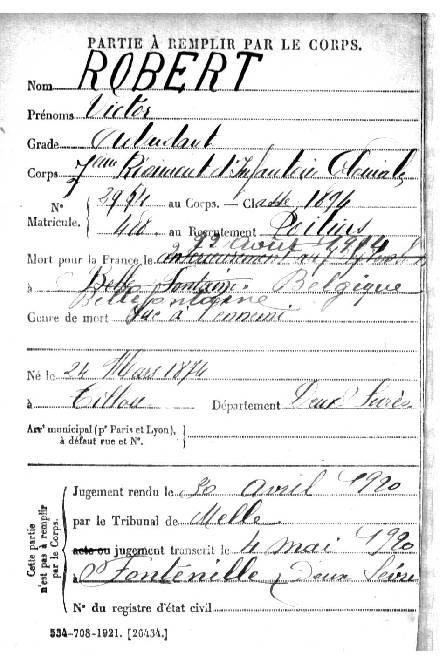 PARTIE À REMPLIR PAR LE CORPS.
Nom ROBERT
Prénoms Victor
Grade Adjudant
Corps 7ème Régiment d'Infanterie Coloniale
N° Matricule. { 3994 au Corps. — Classe 1894
468 au Recrutement Poitiers
22 Août 1914
Mort pour la France le
à Belle Fontaine Belgique
Bellefontaine
Genre de mort Tué à l'ennemi
Né le 24 Mars 1874
à Tillou Département Deux Sèvres
Arrt municipal (pr Paris et Lyon), à défaut rue et N°. }
Cette partie n'est pas à remplir par le Corps.
Jugement rendu le 30 avril 1920
par le Tribunal de Melle
acte ou jugement transcrit le 4 mai 1920
à Fontenille Deux Sèvres
N° du registre d'état civil
534-708-1921. [26434.]